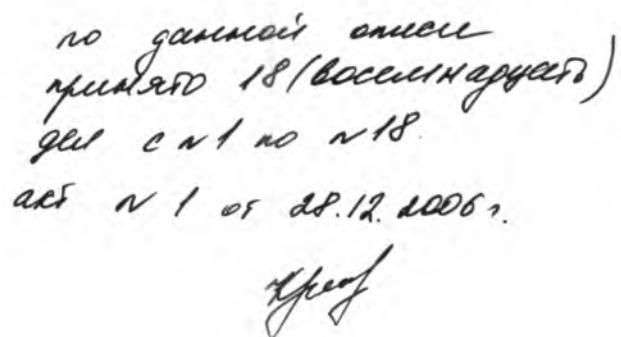 по данной описи
принято 18 (восемнадцать)
дел с №1 по №18.
акт № 1 от 28.12.2006 г.